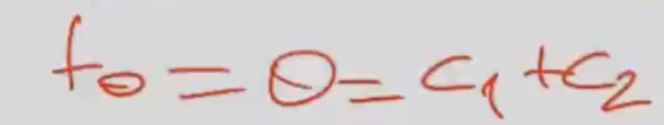 f₀ = 0 = C₁ + C₂